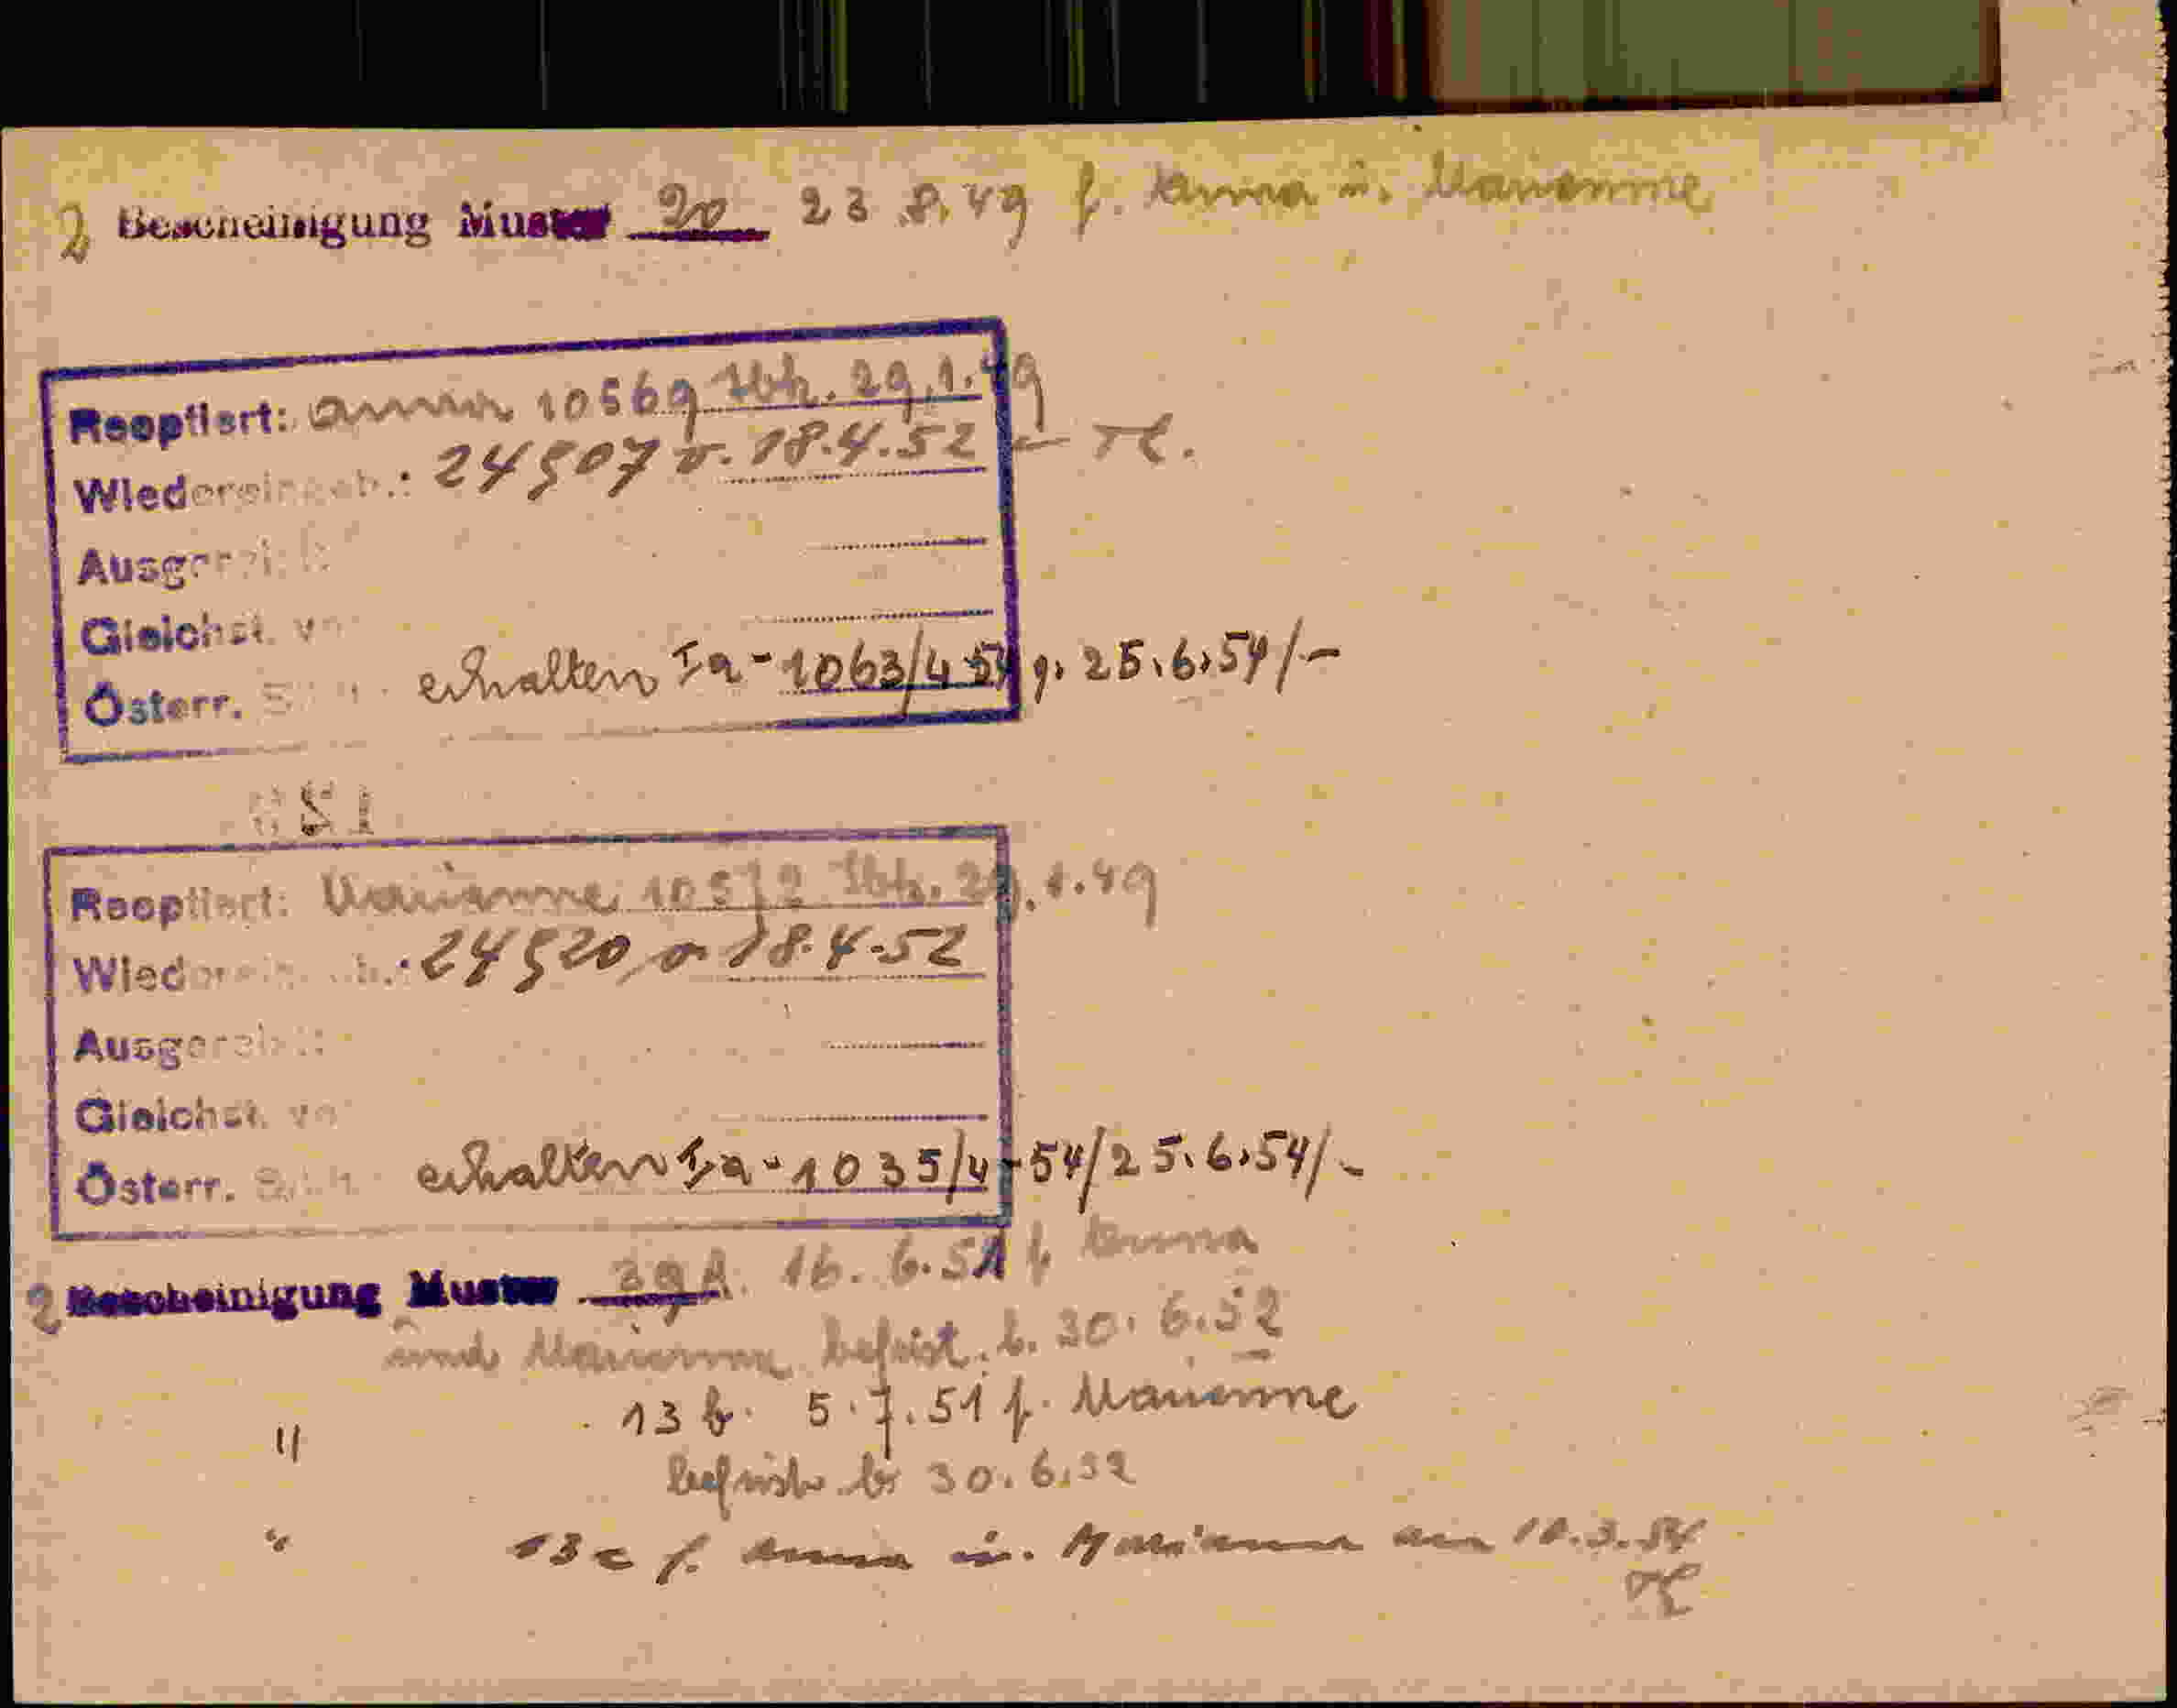 2 Bescheinigung Muster 20 23.8.49 f. Anna u. Marianne
Reoptiert: Anna 10569 Ibk. 29.1.49
Wiedereingeb.: 24507 v. 18.4.52
Ausgereist:
Gleichst. v
Österr. erhalten Ia-1063/4 54 g. 25.6.54/-
Reoptiert: Marianne 10572 Ibk. 29.1.49
Wiedereingeb.: 24520 v. 18.4.52
Ausgereist:
Gleichst. v
Österr. erhalten Ia-1035/4-54/25.6.54/-
2 Bescheinigung Muster 39A. 16.6.51 f. Anna
und Marianne befrist. b. 30.6.52
" 13 b. 5.7.51 f. Marianne
befrist. b. 30.6.52
" 13 c f. Anna u. Marianne am 10.3.54